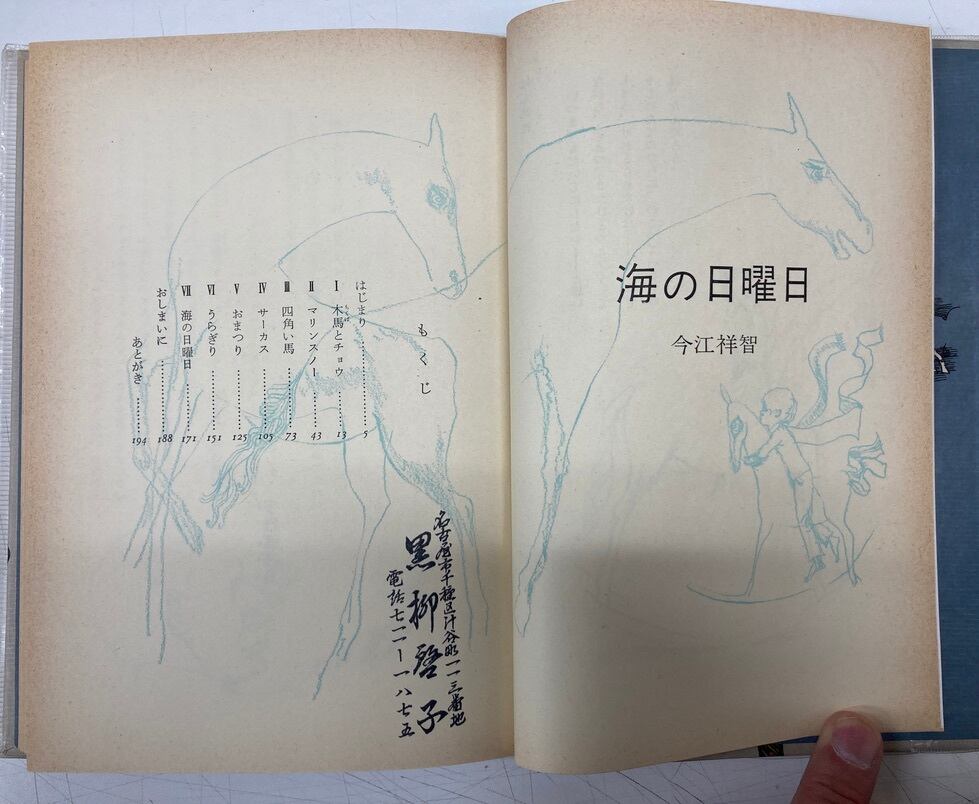 海の日曜日
今江祥智
もくじ
はじまり……………5
Ⅰ 木馬とチョウ……………13
もくば
Ⅱ マリンスノー……………43
Ⅲ 四角い馬……………73
Ⅳ サーカス……………105
Ⅴ おまつり……………125
Ⅵ うらぎり……………151
Ⅶ 海の日曜日……………171
おしまいに……………188
あとがき……………194
名古屋市千種区汁谷町一一三番地
黒柳啓子
電話七二一ー一八七五